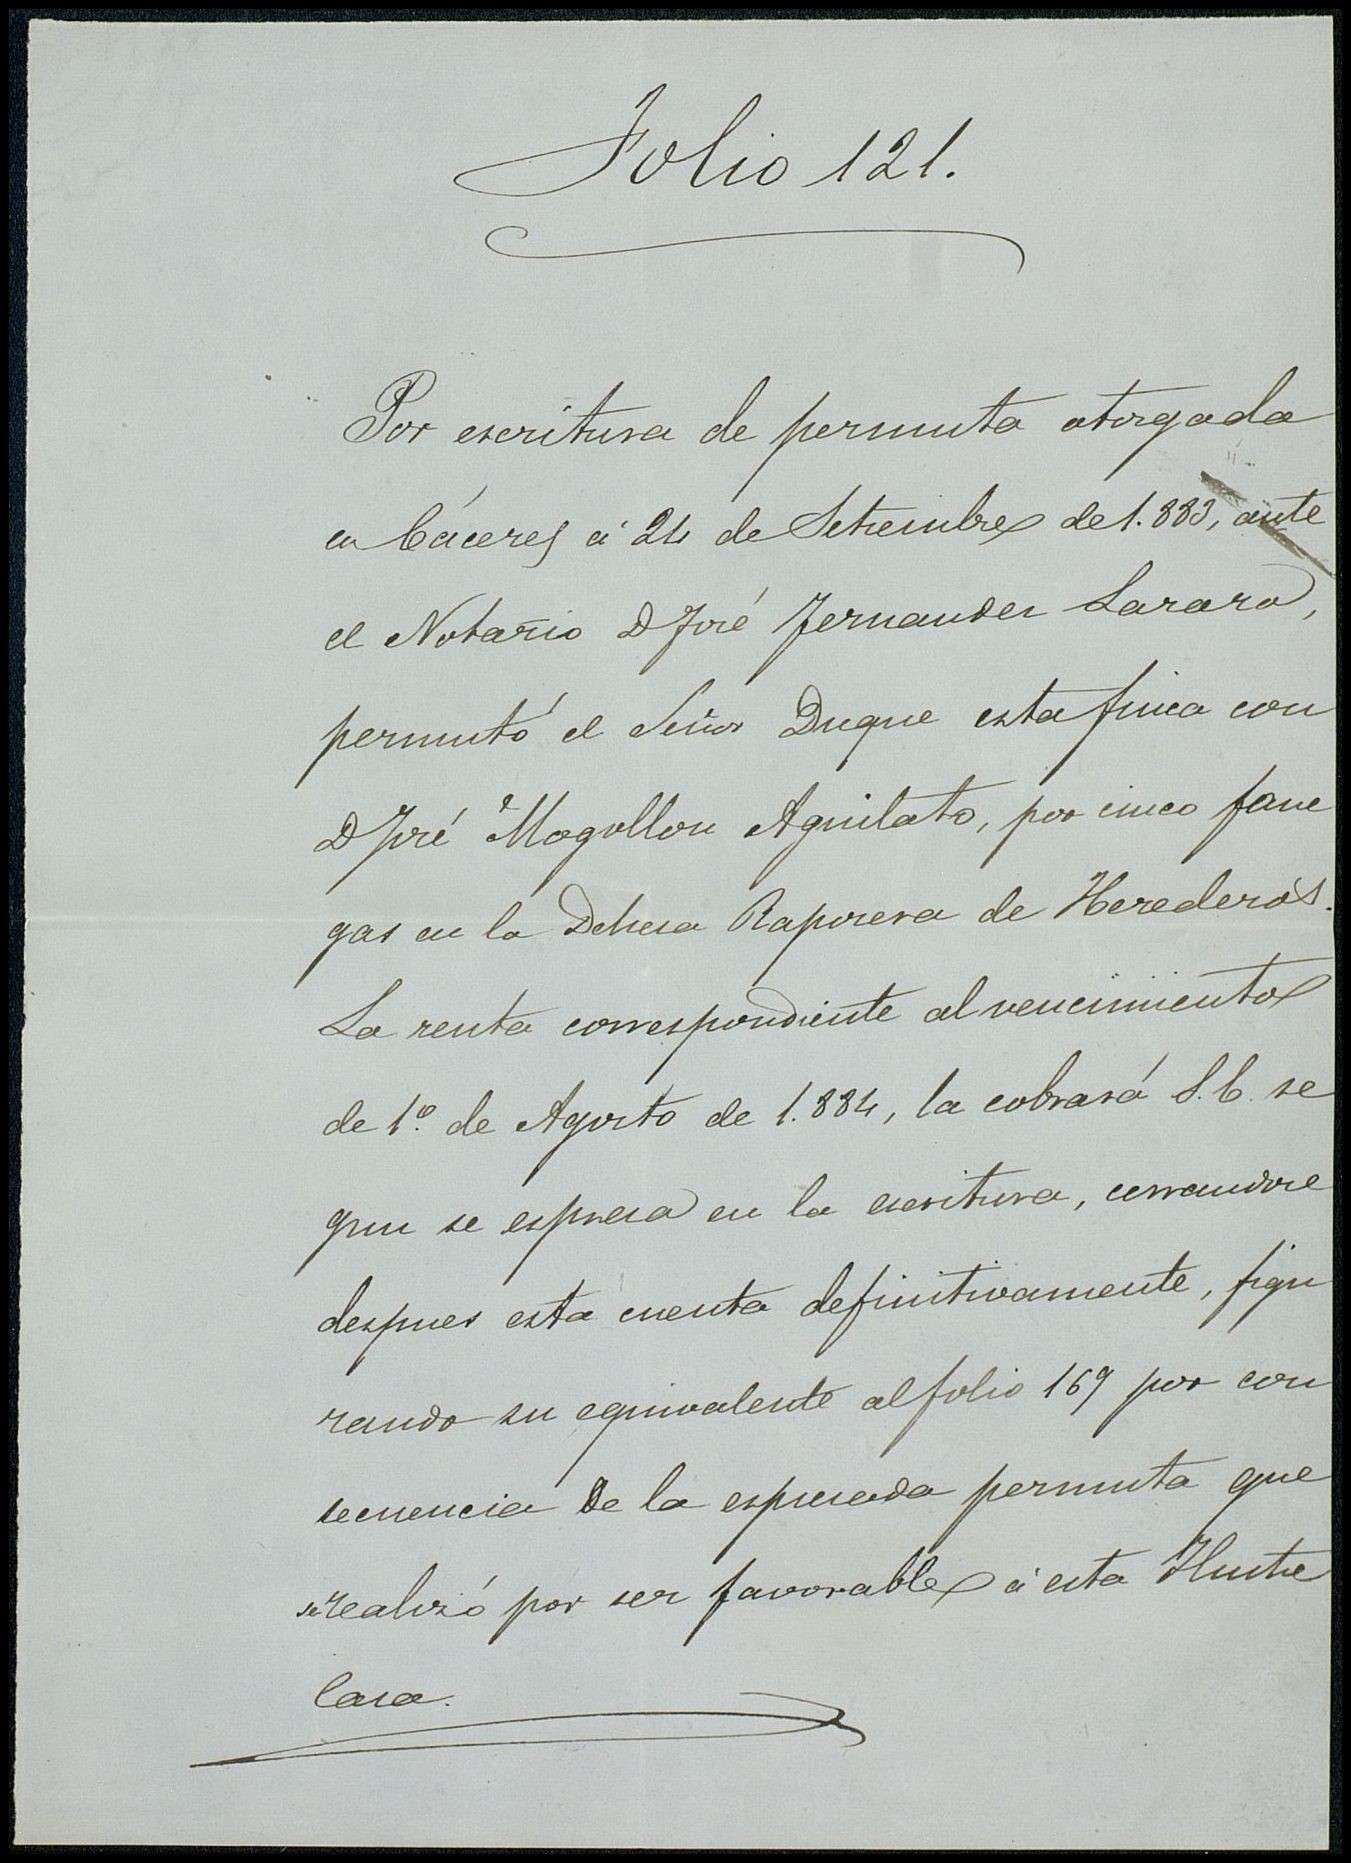 Folio 121.
Por escritura de permuta otorgada
en Cáceres á 24 de Setiembre de 1.883, ante
el Notario D José Fernandez Lazaro,
permutó el Señor Duque esta finca con
D José Mogollon Aguilato, por cinco fane
gas en la Dehesa Raposera de Herederos.
La renta correspondiente al vencimiento
de 1º. de Agosto de 1.884, la cobrará S.C. se
gun se espresa en la escritura, cerrandose
despues esta cuenta definitivamente, figu
rando su equivalente al folio 169 por con
secuencia de la espresada permuta que
se realizó por ser favorable á esta Ilustre
Casa.